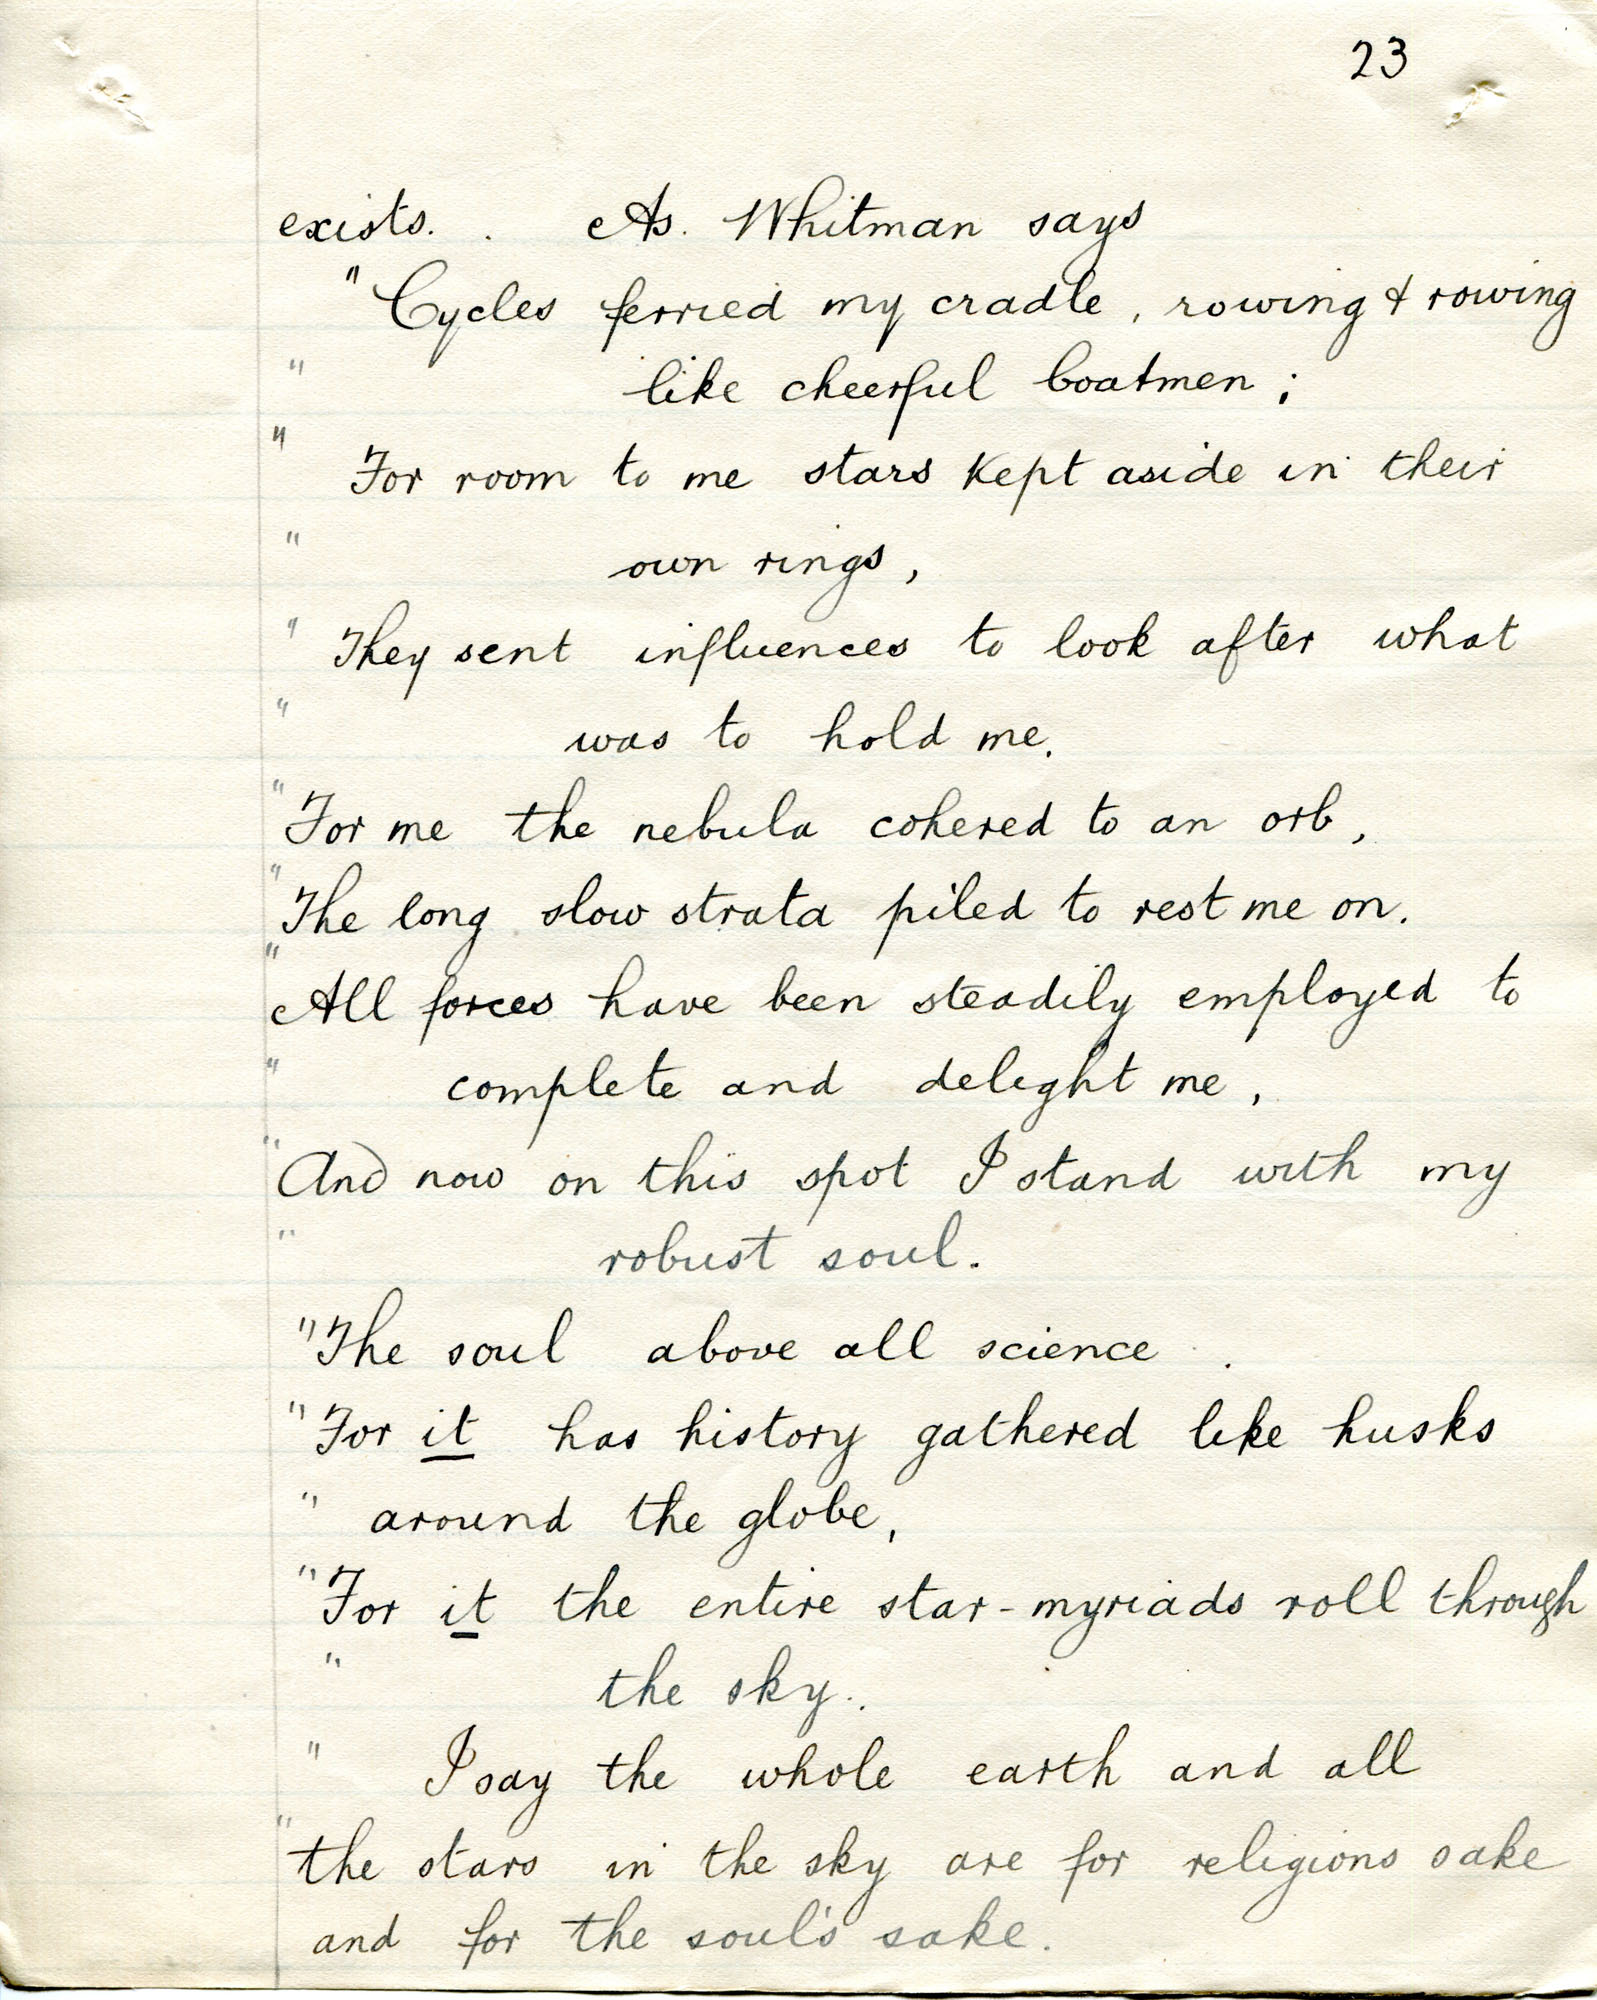 23
exists. . As. Whitman says
" Cycles ferried my cradle, rowing & rowing
" like cheerful boatmen;
" For room to me stars kept aside in their
" own rings,
" They sent influences to look after what
" was to hold me.
" For me the nebula cohered to an orb,
" The long slow strata piled to rest me on.
" All forces have been steadily employed to
" complete and delight me,
" And now on this spot I stand with my
" robust soul.
" The soul above all science .
" For it has history gathered like husks
" around the globe,
" For it the entire star-myriads roll through
" the sky..
" I say the whole earth and all
" the stars in the sky are for religions sake
and for the soul's sake.